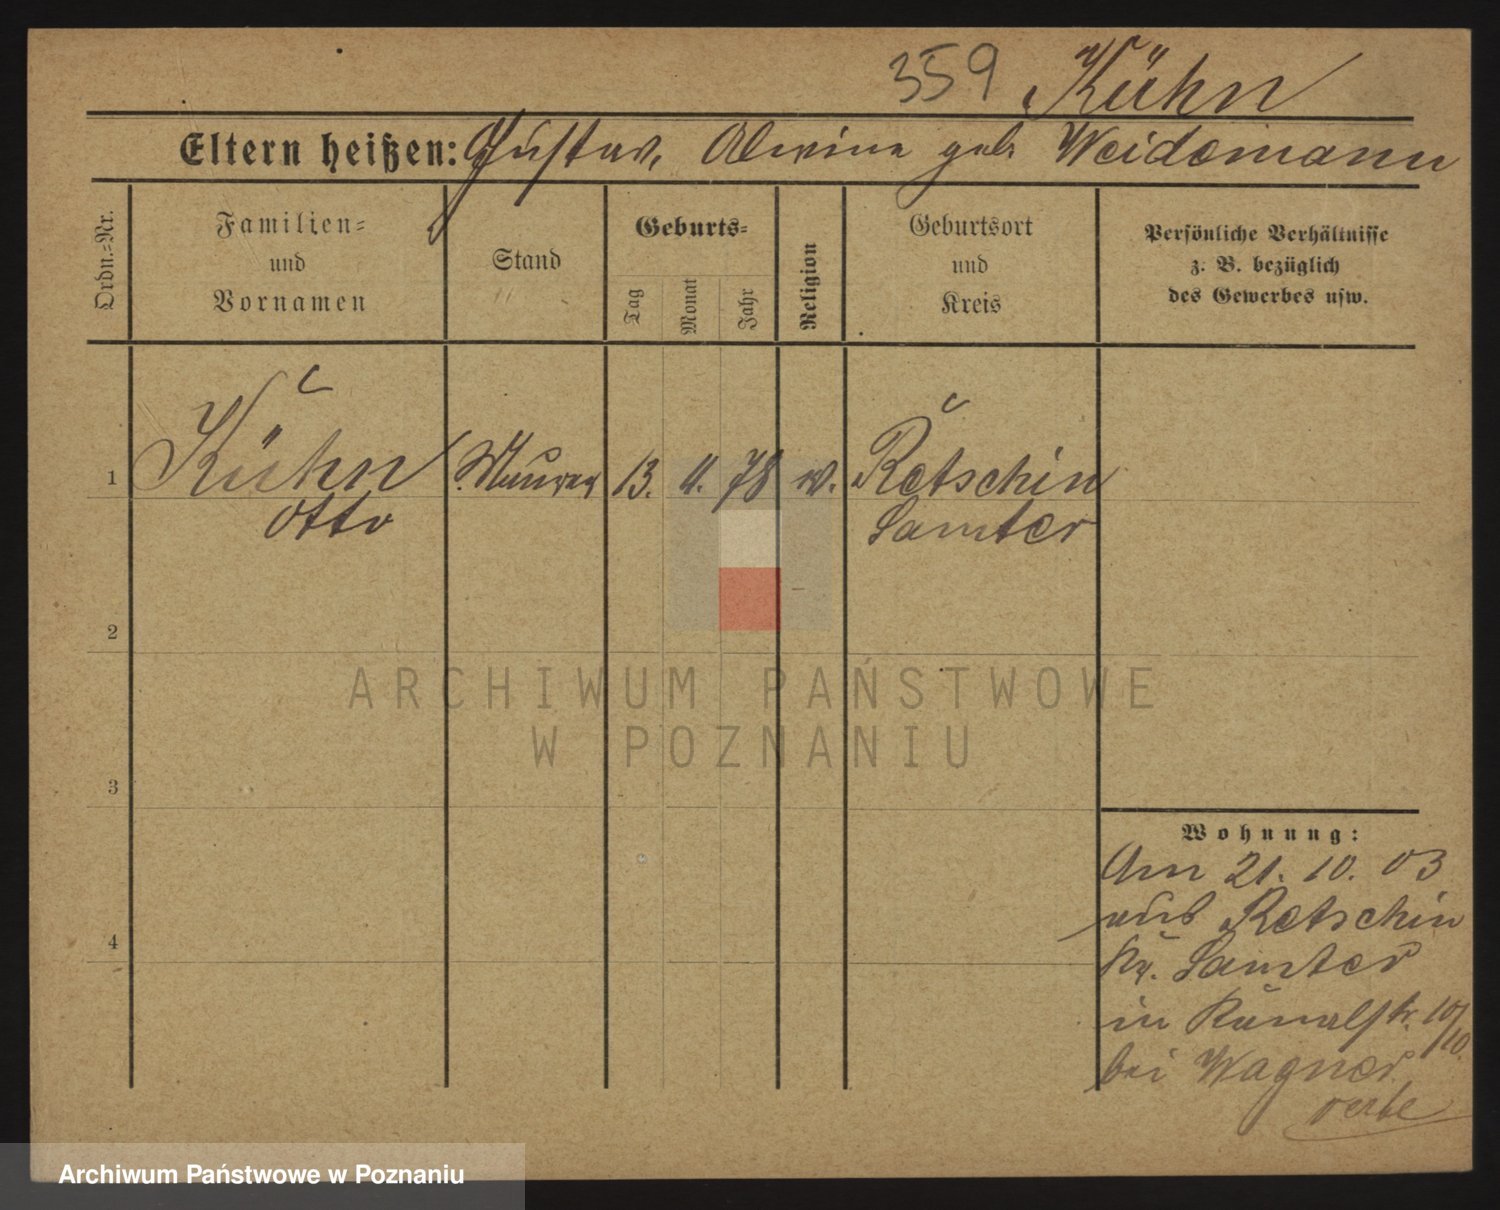 359 Kühn
Eltern heißen: Gustav, Alwine geb. Weidemann
Ordn.=Nr.
Familien=
und
Vornamen
Stand
Geburts=
Tag
Monat
Jahr
Religion
Geburtsort
und
Kreis
Persönliche Verhältnisse
z. B. bezüglich
des Gewerbes usw.
1 Kühn Maurer 13. 11. 78 Retschin
Otto Samter
2
3
4
Wohnung:
Am 21. 10. 03
aus Retschin
Kr. Samter
in Kanalstr. 10/
10.
bei Wagner
ARCHIWUM PAŃSTWOWE
W POZNANIU
Archiwum Państwowe w Poznaniu